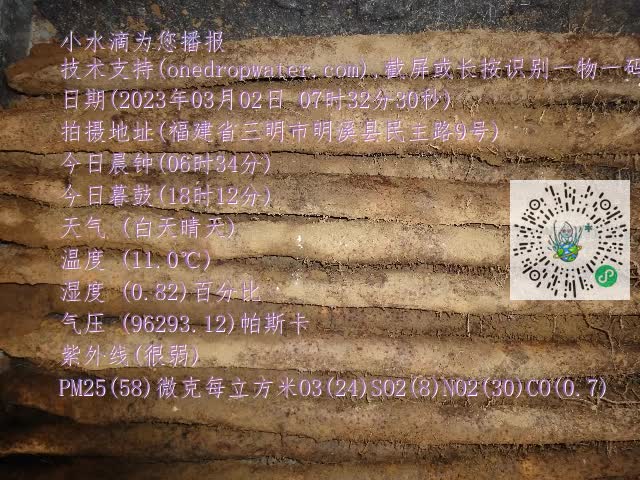 小水滴为您播报
技术支持(onedropwater.com),截屏或长按识别一物一码
日期(2023年03月02日 07时32分30秒)
拍摄地址(福建省三明市明溪县民主路9号)
今日晨钟(06时34分)
今日暮鼓(18时12分)
天气 (白天晴天)
温度 (11.0℃)
湿度 (0.82)百分比
气压 (96293.12)帕斯卡
紫外线(很弱)
PM25(58)微克每立方米O3(24)SO2(8)NO2(30)CO(0.7)